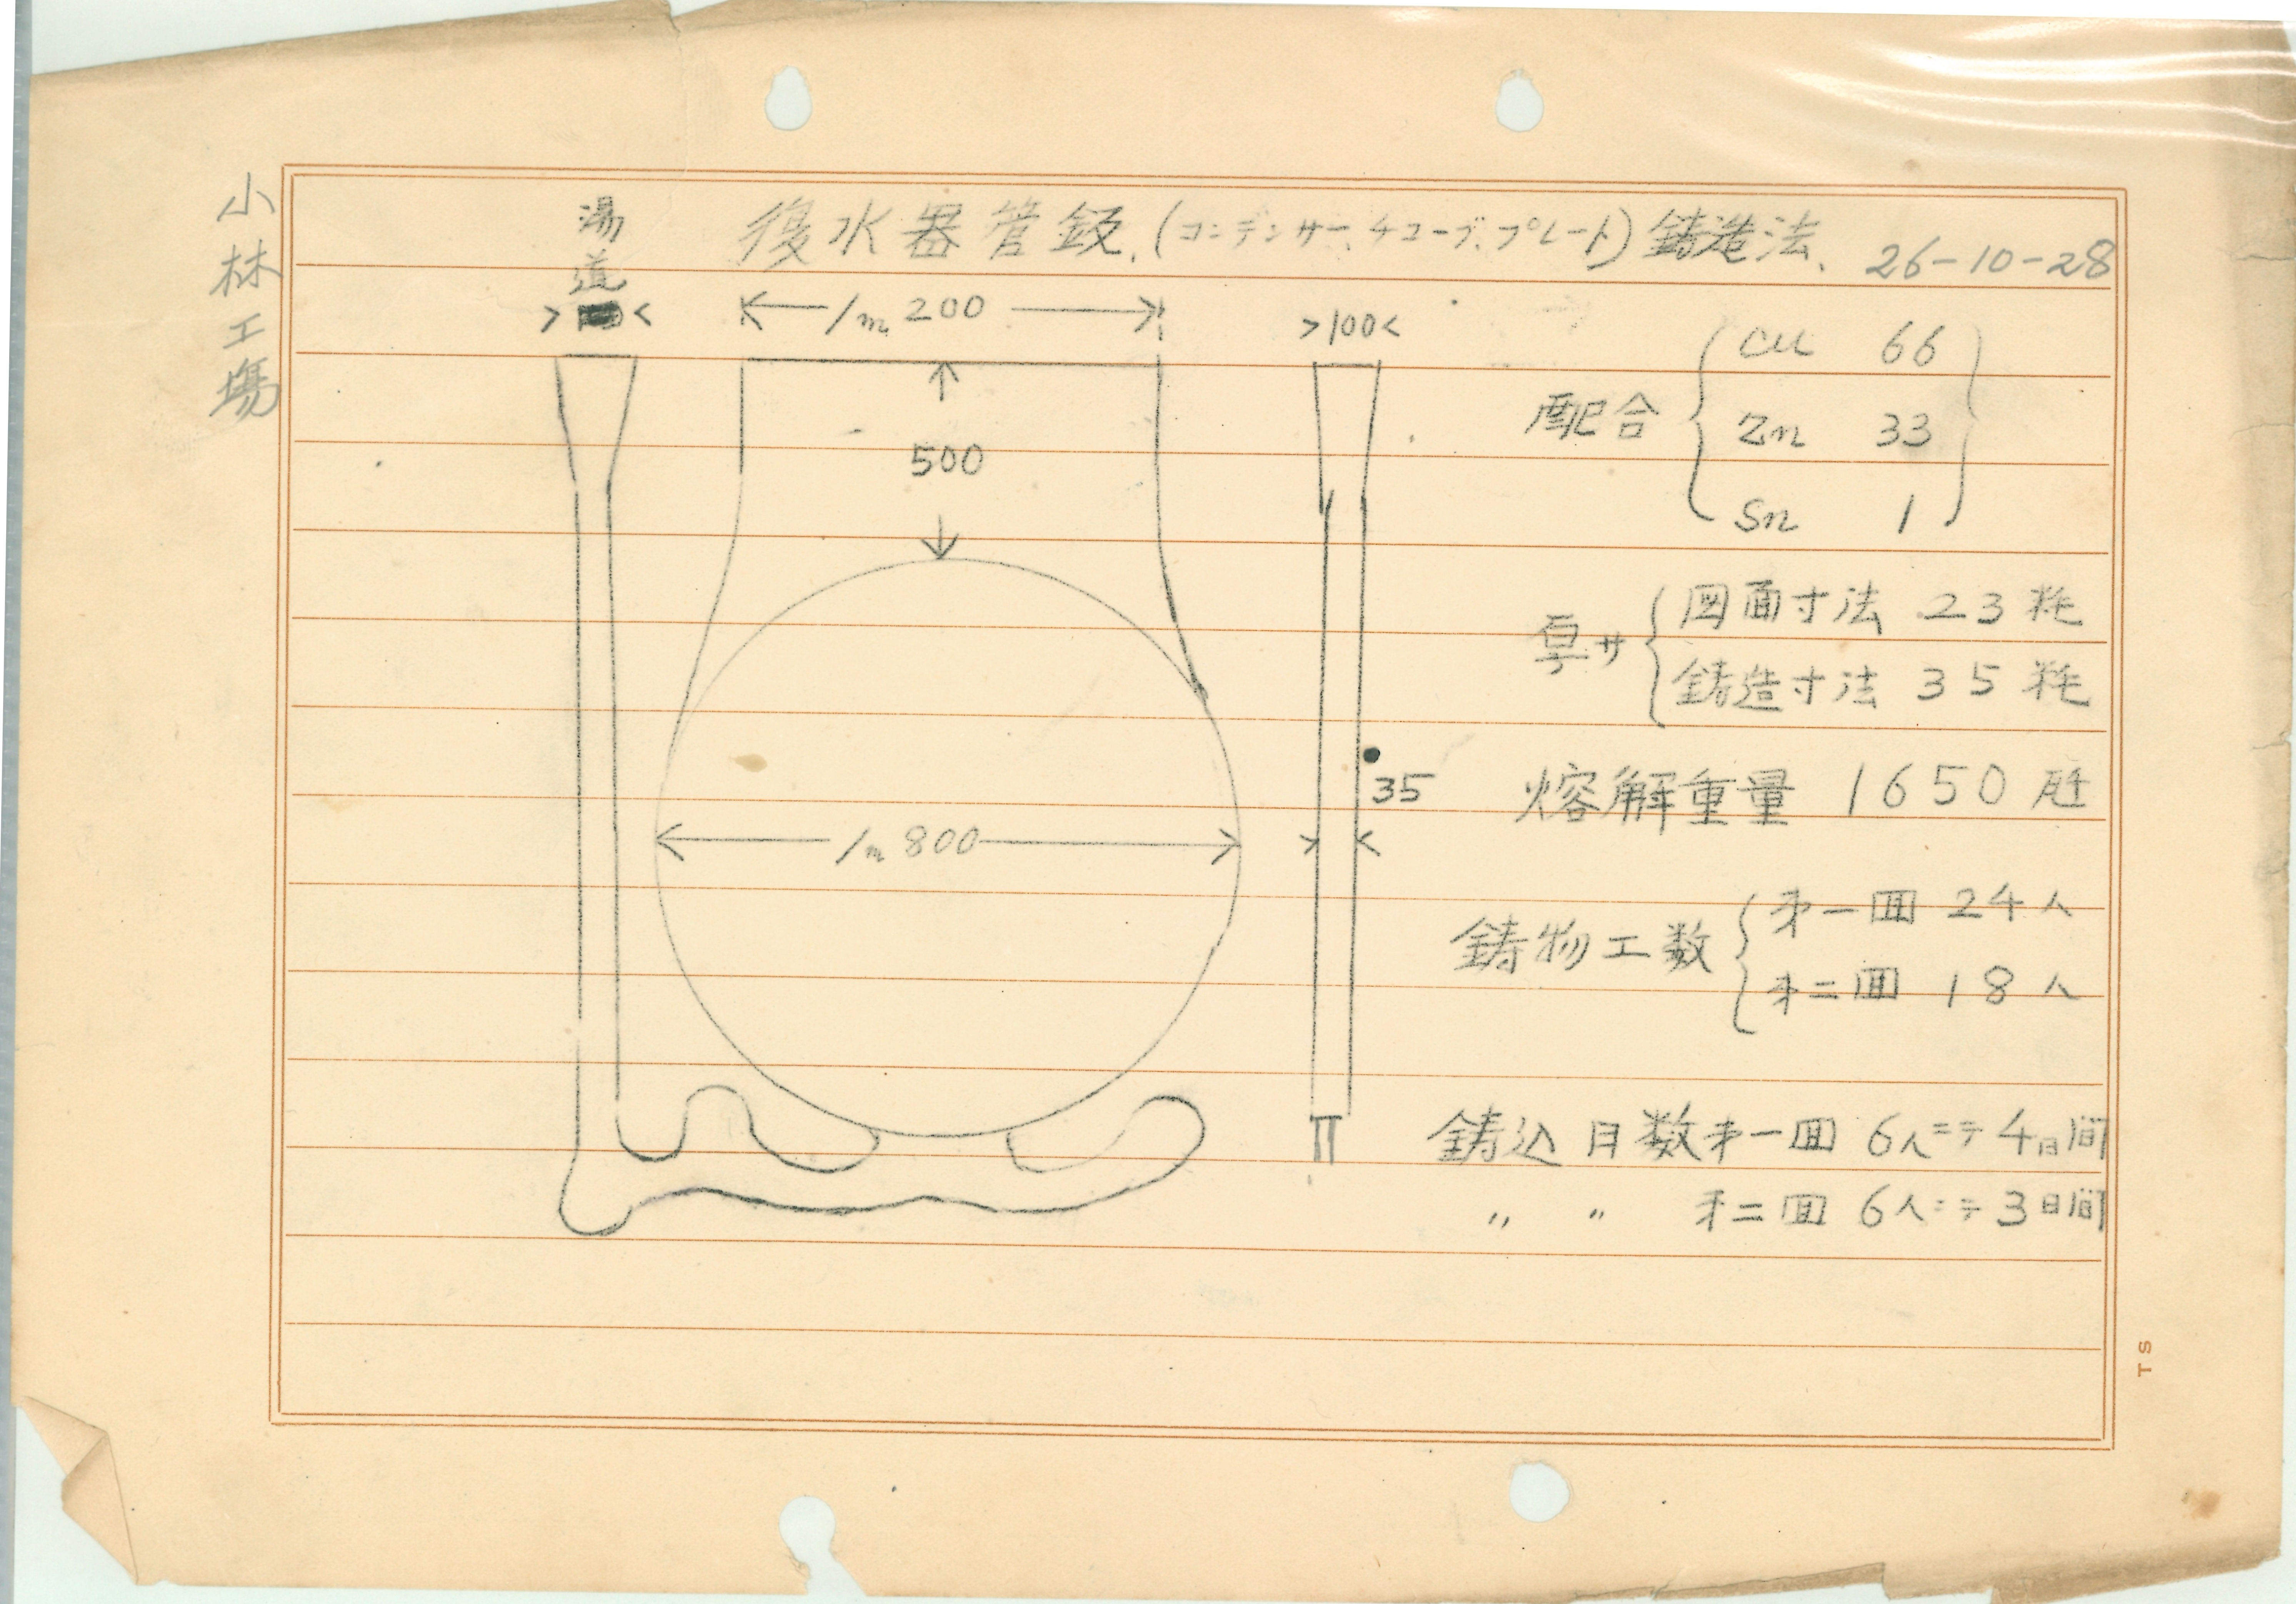 小林工場
湯道
復水器管鈑.(コンデンサー.チューブ.プレート)鋳造法、 26-10-28
1m 200
>100<
500
配合 Cu 66
Zn 33
Sn 1
厚サ 図面寸法 23粍
鋳造寸法 35粍
35
熔解重量 1650瓩
1m 800
鋳物工数 才一回 24人
才二回 18人
鋳込日数才一回 6人ニテ4日間
〃 〃 才二回 6人ニテ3日間
TS